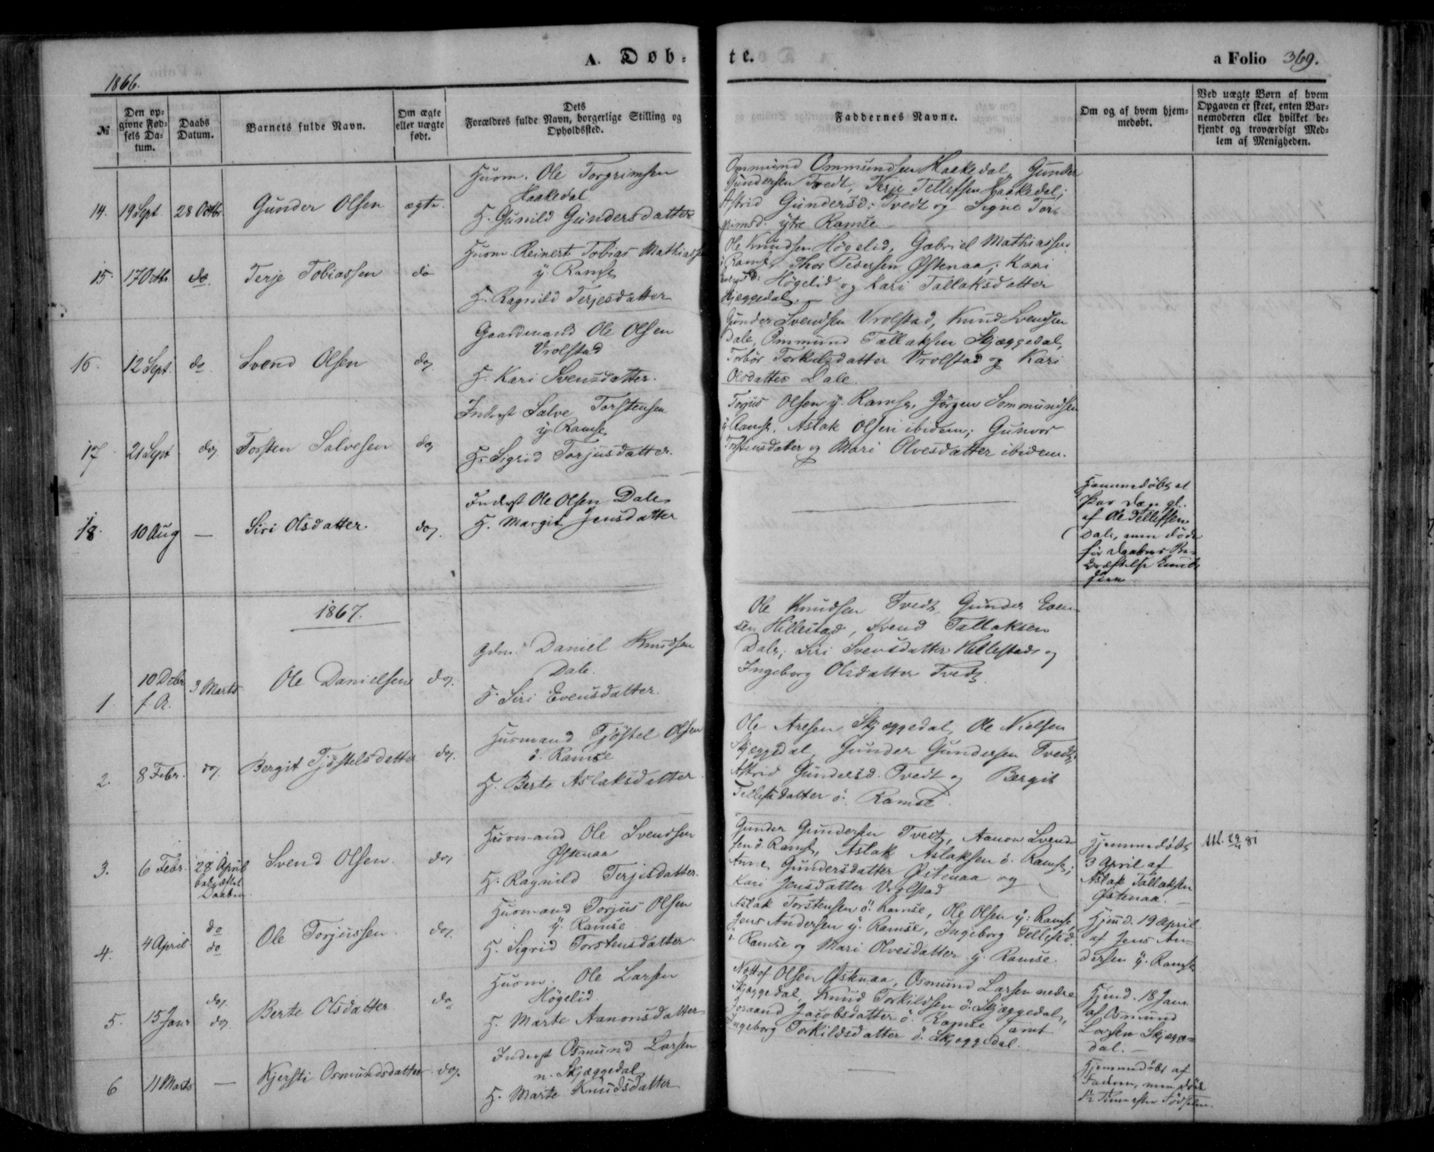 A. Døb-te. a Folio 369.
1866.
№ Den op-givne Fød-sels Da-tum. Daabs Datum. Barnets fulde Navn. Om ægte eller uægte født. Dets Forældres fulde Navn, borgerlige Stilling og Opholdssted. Faddernes Navne. Om og af hvem hjem-medøbt. Ved uægte Børn af hvem Opgaven er skeet, enten Bar-nemoderen eller hvilket be-kjendt og troværdigt Med-lem af Menigheden.
14. 19 Sept 28 Octbr Gunder Olsen ægte.
Huum. Ole Torgrimsen
Haakedal
H. Gunild Gundersdatter
Ommund Ommundsen Haakedal, Gunder
Gundersen Tvedt, Terje Tellefsen Haakedal;
Astrid Gundersd. Tvedt og Signe Tor-
grimsd. ytre Ramse
15. 17 Octb do Terje Tobiassen do
Huum Reinert Tobias Mathiassen
y Ramse
H. Ragnild Terjesdatter
Ole Knudsen Høgelid, Gabriel Mathiassen
Ramse, Thor Pedersen Østenaa, Kari
Høgelid og Kari Tallaksdatter
Skjeggedal
16. 12 Sept. do Svend Olsen do
Gaardmand Ole Olsen
Vrolstad
H. Kari Svensdatter.
Gunder Svendsen Vrolstad, Knud Svendsen
Dale, Ommund Tallaksen Skjæggedal,
Torbor Torkilsdatter Vrolstad og Kari
Olsdatter Dale
17. 21 Sept do Torsten Salvesen do
Inderst Salve Torstensen
y Ramse
H. Sigrid Torjusdatter.
Torjus Olsen y. Ramse, Jørgen Sommundsen
y Ramse, Aslak Olsen ibidem; Gunvor
Torstensdatter og Mari Olvesdatter ibidem.
18. 10 Aug — Siri Olsdatter. do.
Inderst Ole Olsen Dale
H. Margit Jensdatter
Hjemmedøbt et
Par Dage gl.
af Ole Tellefsen
Dale, men døde
før Daabens Be-
kræftelse
1867.
1 10 Dcbr f. A. 3 Marts Ole Danielsen do.
Gdm. Daniel Knudsen
Dale.
H. Siri Evensdatter.
Ole Knudsen Tvedt, Gunder Even-
sen Hillestad, Svend Tallaksen
Dale; Siri Svensdatter Hillestad og
Ingeborg Olsdatter Tvedt
2. 8 Febr. do Bergit Tjøstelsdatter do.
Huusmand Tjøstel Olsen
ö. Ramse
H. Berte Aslaksdatter.
Ole Aresen Skjæggedal, Ole Nielsen
Skjeggedal, Gunder Gundersen Tvedt,
Astrid Gundersd. Tvedt og Bergit
Tellefsdatter ö. Ramse.
3. 6 Febr. 28 April Svend Olsen. do
Huusmand Ole Svendsen
Østenaa
H. Ragnild Terjesdatter
Gunder Gundersen Tvedt, Aanon Svend-
sen ö. Ramse, Aslak Aslaksen ö. Ramse;
Anne Gundersdatter Østenaa og
Kari Jensdatter Vrolstad
Hjemmedøbt
3 April af
Aslak Tallaksen
Østenaa.
Att. 29/4 81
4. 4 April do do Ole Torjussen do.
Huusmand Torjus Olsen
y. Ramse
H. Sigrid Torstensdatter
Aslak Torstensen ö. Ramse, Ole Olsen y. Ramse,
Jens Andersen y. Ramse, Ingeborg Tellefsd.
Ramse og Mari Olvesdatter y. Ramse.
Hjmd. 19 April
af Jens An-
dersen y. Ramse
5. 15 Janr do. do. Berte Olsdatter do
Huum. Ole Larsen
Høgelid
H. Marte Aanonsdatter
Olsen Østenaa, Osmund Larsen nedre
Skjæggedal, Knud Torkildsen ö. Skjæggedal,
Jacobsdatter ö. Ramse samt
Ingeborg Torkildsdatter ö. Skjeggedal.
Hjmd. 18 Janr.
af Osmund
Larsen Skjægge-
dal.
6 11 Marts — Kjersti Osmundsdatter do.
Inderst Osmund Larsen
n. Skjæggedal
H. Marte Knudsdatter
Hjemmedøbt af
Faderen, men døde